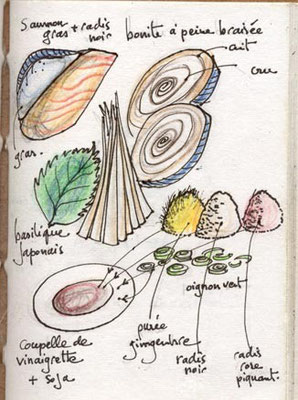 Saumon
gras + radis
noir
bonite à peine braisée
cuit
cru
gras
basilique
japonais
oignon vert
coupelle de
vinaigrette
+ soja
purée
gingembre
radis
noir
radis
rose
piquant.